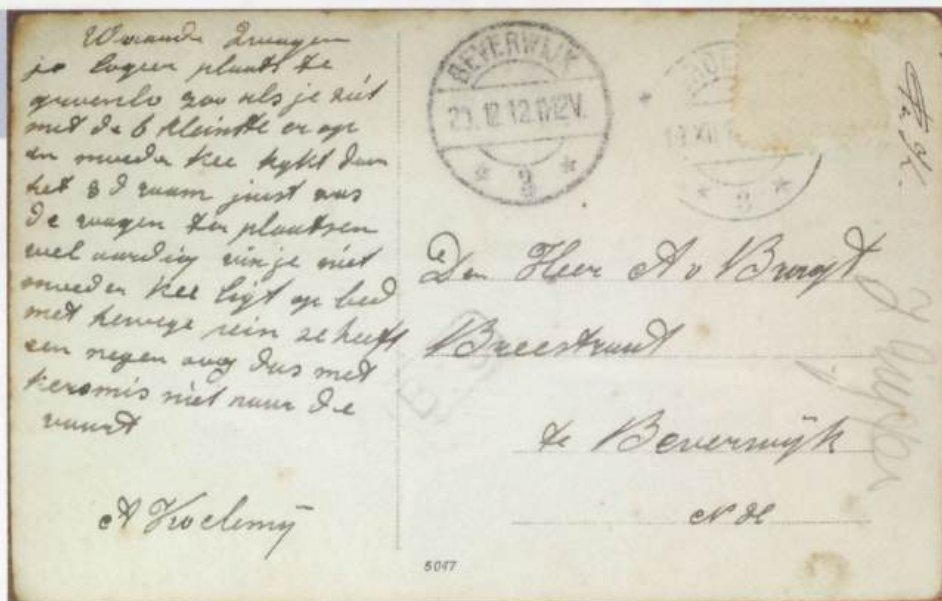 Waarde Zwager
je logeer plaats te
gravenlo zoo als je ziet
met de 6 kleinste er op
en moeder Kee kykt door
het 3d raam juist was
de wagen ter plaatsen
wel aardig vin je niet
moeder Kee ligt op bed
met hevege pein ze heeft
een negen oog dus met
kermis niet naar de
vaart
A Koelemij
BEVERWIJK
20.12.12.11-12V.
2
Den Heer A v Brugt
Breestraat
te Beverwijk
N H
5047